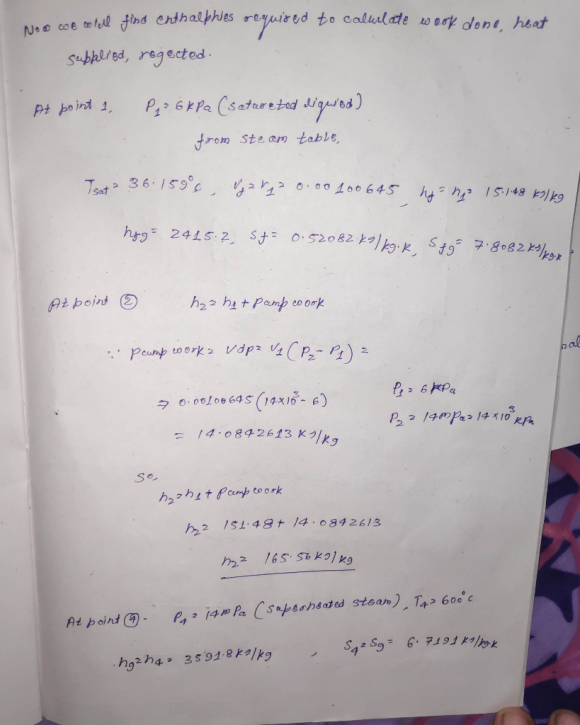 Now we will find enthalphies required to calculate work done, heat
supplied, rejected.
At point 1, P₁ = 6kPa (saturated liquid)
from steam table,
Tsat = 36.159°c, Vf = V₁ = 0.00100645, hf = h₁ = 15.148 KJ/kg
hfg = 2415.2, Sf = 0.52082 KJ/kg.K, Sfg = 7.8082 KJ/kgk
At point ② h₂ = h₁ + Pump work
∵ Pump work = vdp = V₁ (P₂ - P₁) =
P₁ = 6 kPa
⇒ 0.00100645 (14×10³ - 6)
P₂ = 14mPa = 14×10³ kPa
= 14.0842613 KJ/kg
So,
h₂ = h₁ + Pump work
h₂ = 151.48 + 14.0842613
h₂ = 165.56 KJ/kg
At point ④ - P₄ = 14mPa (superheated steam), T₄ = 600°c
hg = h₄ = 3591.8 KJ/kg, S₄ = Sg = 6.7191 KJ/kgk